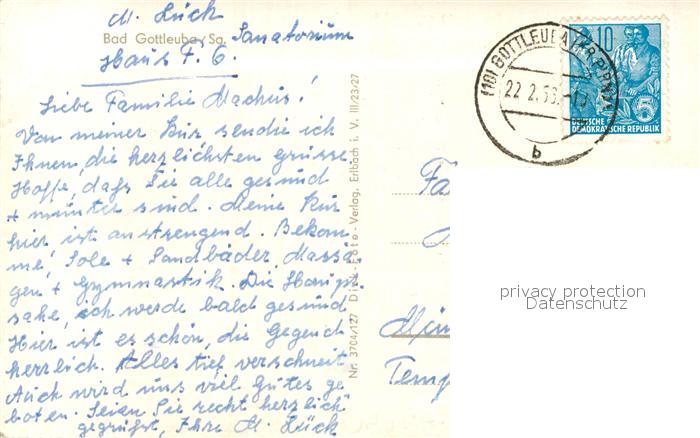 M. Lück
Bad Gottleuba/Sa. Sanatorium
Haus F. 6.
Liebe Familie Machus!
Von meiner Kur sendie ich
Ihnen, die herzlichsten grüsse.
Hoffe, dafs Sie alle gesund
+ munter sind. Meine Kur
hier ist anstrengend. Bekom
me! Sole + Sandbäder, Massa
gen + Gymnastik. Die Haupt
sahe, ich werde bald gesund
Hier ist es schön, die Gegend
herrlich. Alles tief verschneit
Auch wird uns viel Gutes ge
boten. Seien Sie recht herzlich
gegrüßt, Ihre M. Lück
Nr. 3704/127 Dick-Foto-Verlag, Erlbach i. V. III/23/27
(10) GOTTLEUBA (KR. PIRNA)
22.2.
b
10
DEUTSCHE
DEMOKRATISCHE REPUBLIK
5
Temp
privacy protection
Datenschutz